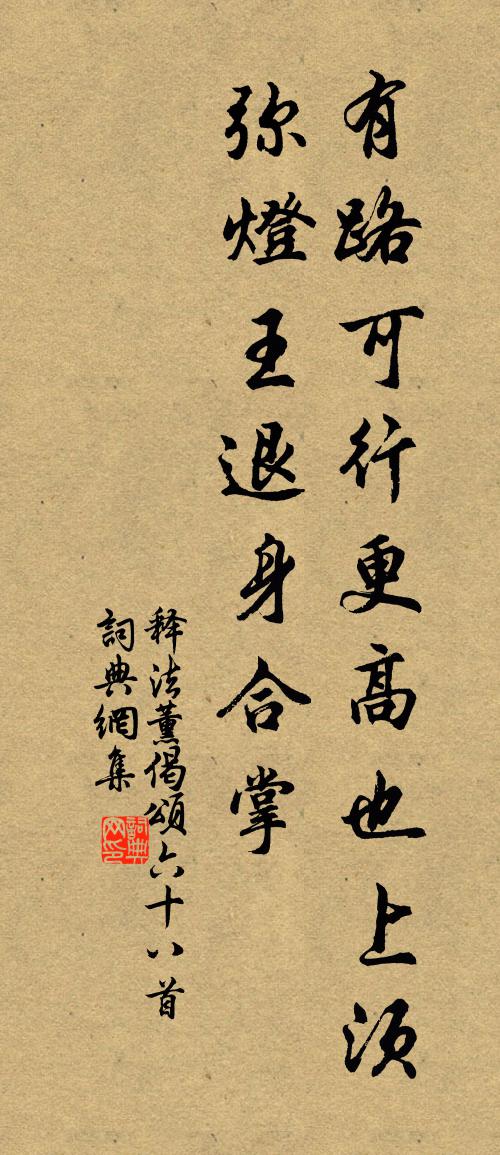 有路可行更高也上须
弥燈王退身合掌
释法薰偈頌六十八首
詞典網集
詞典網印